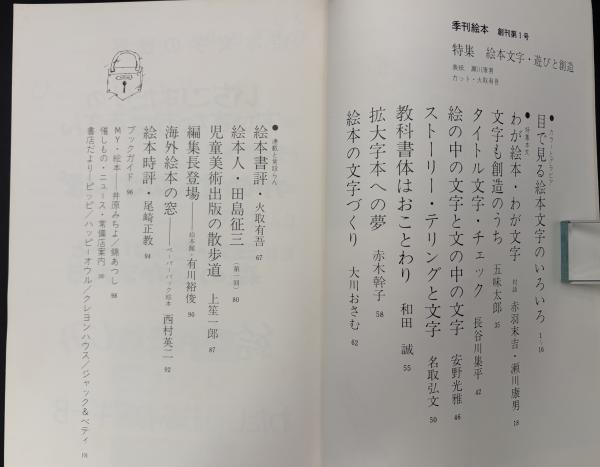 季刊絵本 創刊第1号
特集 絵本文字・遊びと創造
表紙 瀬川康男
カット・火取有吾
●カラー・グラビア
目で見る絵本文字のいろいろ 1〜16
●特集本文
わが絵本・わが文字 対談 赤羽末吉・瀬川康男 18
文字も創造のうち 五味太郎 35
タイトル文字・チェック 長谷川集平 42
絵の中の文字と文の中の文字 安野光雅 46
ストーリー・テリングと文字 名取弘文 50
教科書体はおことわり 和田 誠 55
拡大字本への夢 赤木幹子 58
絵本の文字づくり 大川おさむ 62
●連載と常設らん
絵本書評・火取有吾 67
絵本人・田島征三 (第一回) 80
児童美術出版の散歩道 上笙一郎 87
編集長登場——絵本館・有川裕俊 90
海外絵本の窓——ペーパーバック絵本 西村英二 92
絵本時評・尾崎正教 94
ブックガイド 96
MY・絵本——井原みちよ/錦あつし 98
催しもの・ニュース・常備店案内 99
書店だより—ピッピ/ハッピーオウル/クレヨンハウス/ジャック&ベティ 101